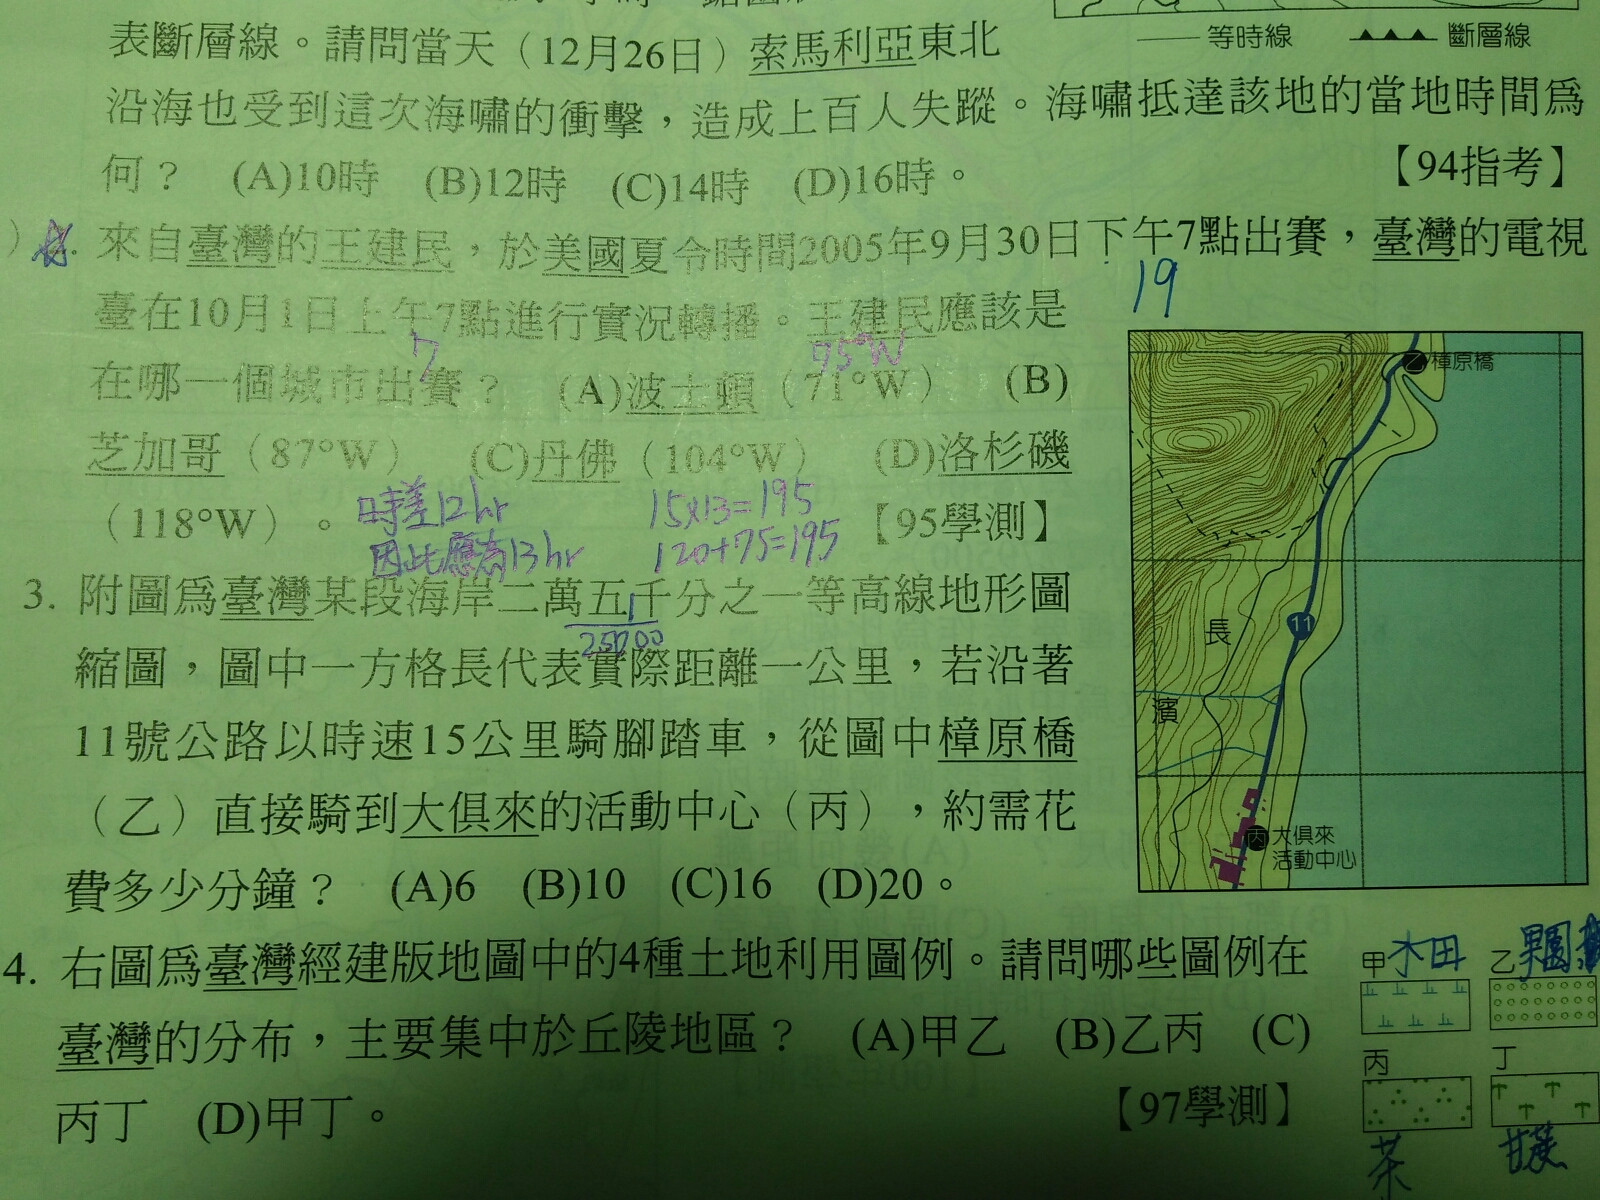 表斷層線。請問當天（12月26日）索馬利亞東北
等時線 斷層線
沿海也受到這次海嘯的衝擊，造成上百人失蹤。海嘯抵達該地的當地時間為
何？ (A)10時 (B)12時 (C)14時 (D)16時。 【94指考】
來自臺灣的王建民，於美國夏令時間2005年9月30日下午7點出賽，臺灣的電視
19
臺在10月1日上午7點進行實況轉播。王建民應該是
7 75°W
在哪一個城市出賽？ (A)波士頓（71°W） (B)
芝加哥（87°W） (C)丹佛（104°W） (D)洛杉磯
（118°W）。 【95學測】
時差12hr 15x13=195
因此應為13hr 120+75=195
3. 附圖為臺灣某段海岸二萬五千分之一等高線地形圖
1
25000
縮圖，圖中一方格長代表實際距離一公里，若沿著
11號公路以時速15公里騎腳踏車，從圖中樟原橋
（乙）直接騎到大俱來的活動中心（丙），約需花
費多少分鐘？ (A)6 (B)10 (C)16 (D)20。
乙 樟原橋
11
長
濱
丙 大俱來
活動中心
4. 右圖為臺灣經建版地圖中的4種土地利用圖例。請問哪些圖例在
臺灣的分布，主要集中於丘陵地區？ (A)甲乙 (B)乙丙 (C)
丙丁 (D)甲丁。 【97學測】
甲 水田 乙
丙 丁
茶